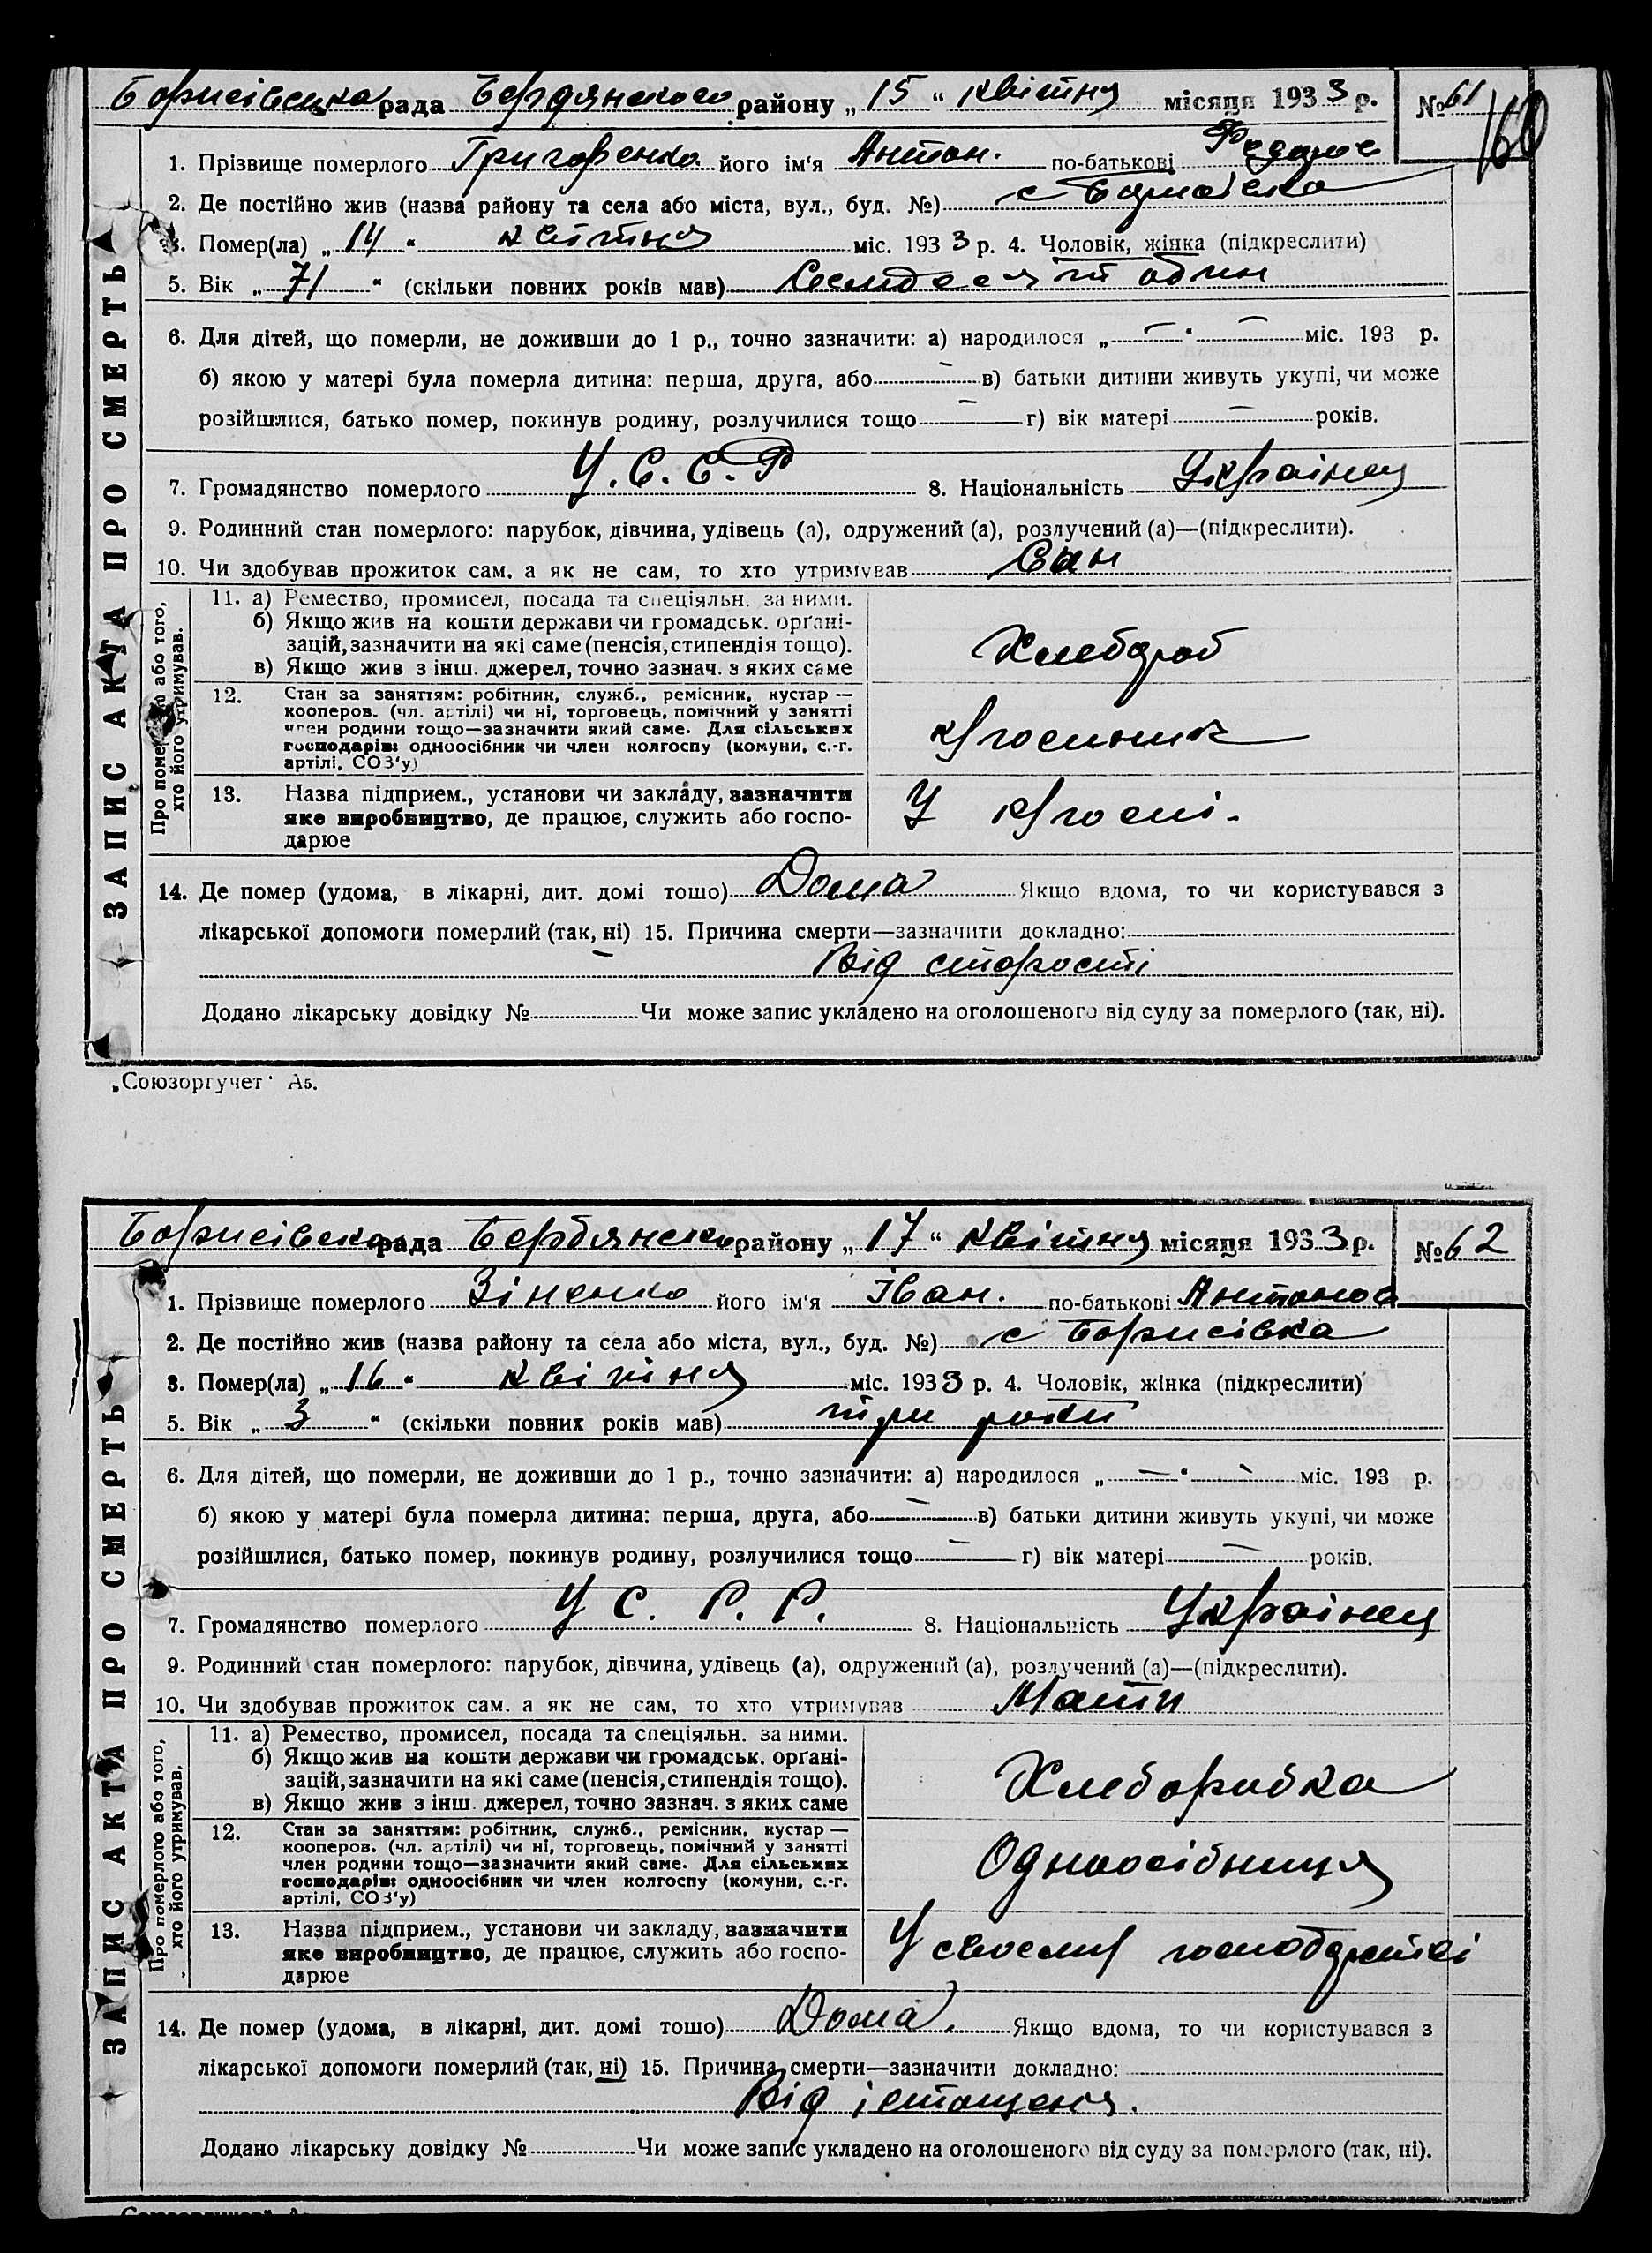 Борисівська рада Бердянского району „ 15 “ квітня місяця 1933 р. № 61
160
1. Прізвище померлого Григоренко його ім'я Антон. по-батькові Федоров
2. Де постійно жив (назва району та села або міста, вул., буд. №) с Борисівка
3. Помер(ла) „ 14 “ квітня міс. 1933 р. 4. Чоловік, жінка (підкреслити)
5. Вік „ 71 “ (скільки повних років мав) Семдесят один
6. Для дітей, що померли, не доживши до 1 р., точно зазначити: а) народилося „ — “ — міс. 193 р.
б) якою у матері була померла дитина: перша, друга, або — в) батьки дитини живуть укупі, чи може
розійшлися, батько помер, покинув родину, розлучилися тощо — г) вік матері — років.
7. Громадянство померлого У.С.С.Р 8. Національність Українец
9. Родинний стан померлого: парубок, дівчина, удівець (а), одружений (а), розлучений (а)—(підкреслити).
10. Чи здобував прожиток сам, а як не сам, то хто утримував Сам
ЗАПИС АКТА ПРО СМЕРТЬ
Про померлого або того,
хто його утримував.
11. а) Ремество, промисел, посада та спеціяльн. за ними.
б) Якщо жив на кошти держави чи громадськ. орґані-
зацій, зазначити на які саме (пенсія, стипендія тощо).
в) Якщо жив з інш. джерел, точно зазнач. з яких саме
Хлебороб
12. Стан за заняттям: робітник, служб., ремісник, кустар —
кооперов. (чл. артілі) чи ні, торговець, помічний у занятті
член родини тощо—зазначити який саме. Для сільських
господарів: одноосібник чи член колгоспу (комуни, с.-г.
артілі, СОЗ'у)
13. Назва підприєм., установи чи закладу, зазначити
яке виробництво, де працює, служить або госпо-
дарює
У
14. Де помер (удома, в лікарні, дит. домі тощо) Дома Якщо вдома, то чи користувався з
лікарської допомоги померлий (так, ні) 15. Причина смерти—зазначити докладно:
Від старості
Додано лікарську довідку № Чи може запис укладено на оголошеного від суду за померлого (так, ні).
„Союзоргучет“ А5.
Борисівська рада Бердянского району „ 17 “ квітня місяця 1933 р. № 62
1. Прізвище померлого Зіненко його ім'я Іван. по-батькові Антонов
2. Де постійно жив (назва району та села або міста, вул., буд. №) с Борисівка
3. Помер(ла) „ 16 “ квітня міс. 1933 р. 4. Чоловік, жінка (підкреслити)
5. Вік „ 3 “ (скільки повних років мав) три роки
6. Для дітей, що померли, не доживши до 1 р., точно зазначити: а) народилося „ — “ — міс. 193 р.
б) якою у матері була померла дитина: перша, друга, або — в) батьки дитини живуть укупі, чи може
розійшлися, батько помер, покинув родину, розлучилися тощо — г) вік матері — років.
7. Громадянство померлого У С. Р. Р. 8. Національність Українец
9. Родинний стан померлого: парубок, дівчина, удівець (а), одружений (а), розлучений (а)—(підкреслити).
10. Чи здобував прожиток сам, а як не сам, то хто утримував Мати
ЗАПИС АКТА ПРО СМЕРТЬ
Про померлого або того,
хто його утримував.
11. а) Ремество, промисел, посада та спеціяльн. за ними.
б) Якщо жив на кошти держави чи громадськ. орґані-
зацій, зазначити на які саме (пенсія, стипендія тощо).
в) Якщо жив з інш. джерел, точно зазнач. з яких саме
Хлеборобка
12. Стан за заняттям: робітник, служб., ремісник, кустар —
кооперов. (чл. артілі) чи ні, торговець, помічний у занятті
член родини тощо—зазначити який саме. Для сільських
господарів: одноосібник чи член колгоспу (комуни, с.-г.
артілі, СОЗ'у)
Одноосібниця
13. Назва підприєм., установи чи закладу, зазначити
яке виробництво, де працює, служить або госпо-
дарює
У своему господарстві
14. Де помер (удома, в лікарні, дит. домі тощо) Дома. Якщо вдома, то чи користувався з
лікарської допомоги померлий (так, ні) 15. Причина смерти—зазначити докладно:
Від істощеня.
Додано лікарську довідку № Чи може запис укладено на оголошеного від суду за померлого (так, ні).